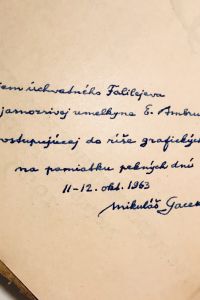 jem úchvatného Falilejeva
jasnozrivej umelkyne E. Ambru
ostupujúcej do ríše grafických
na pamiatku pekných dní
11-12. okt. 1963
Mikuláš Gacek